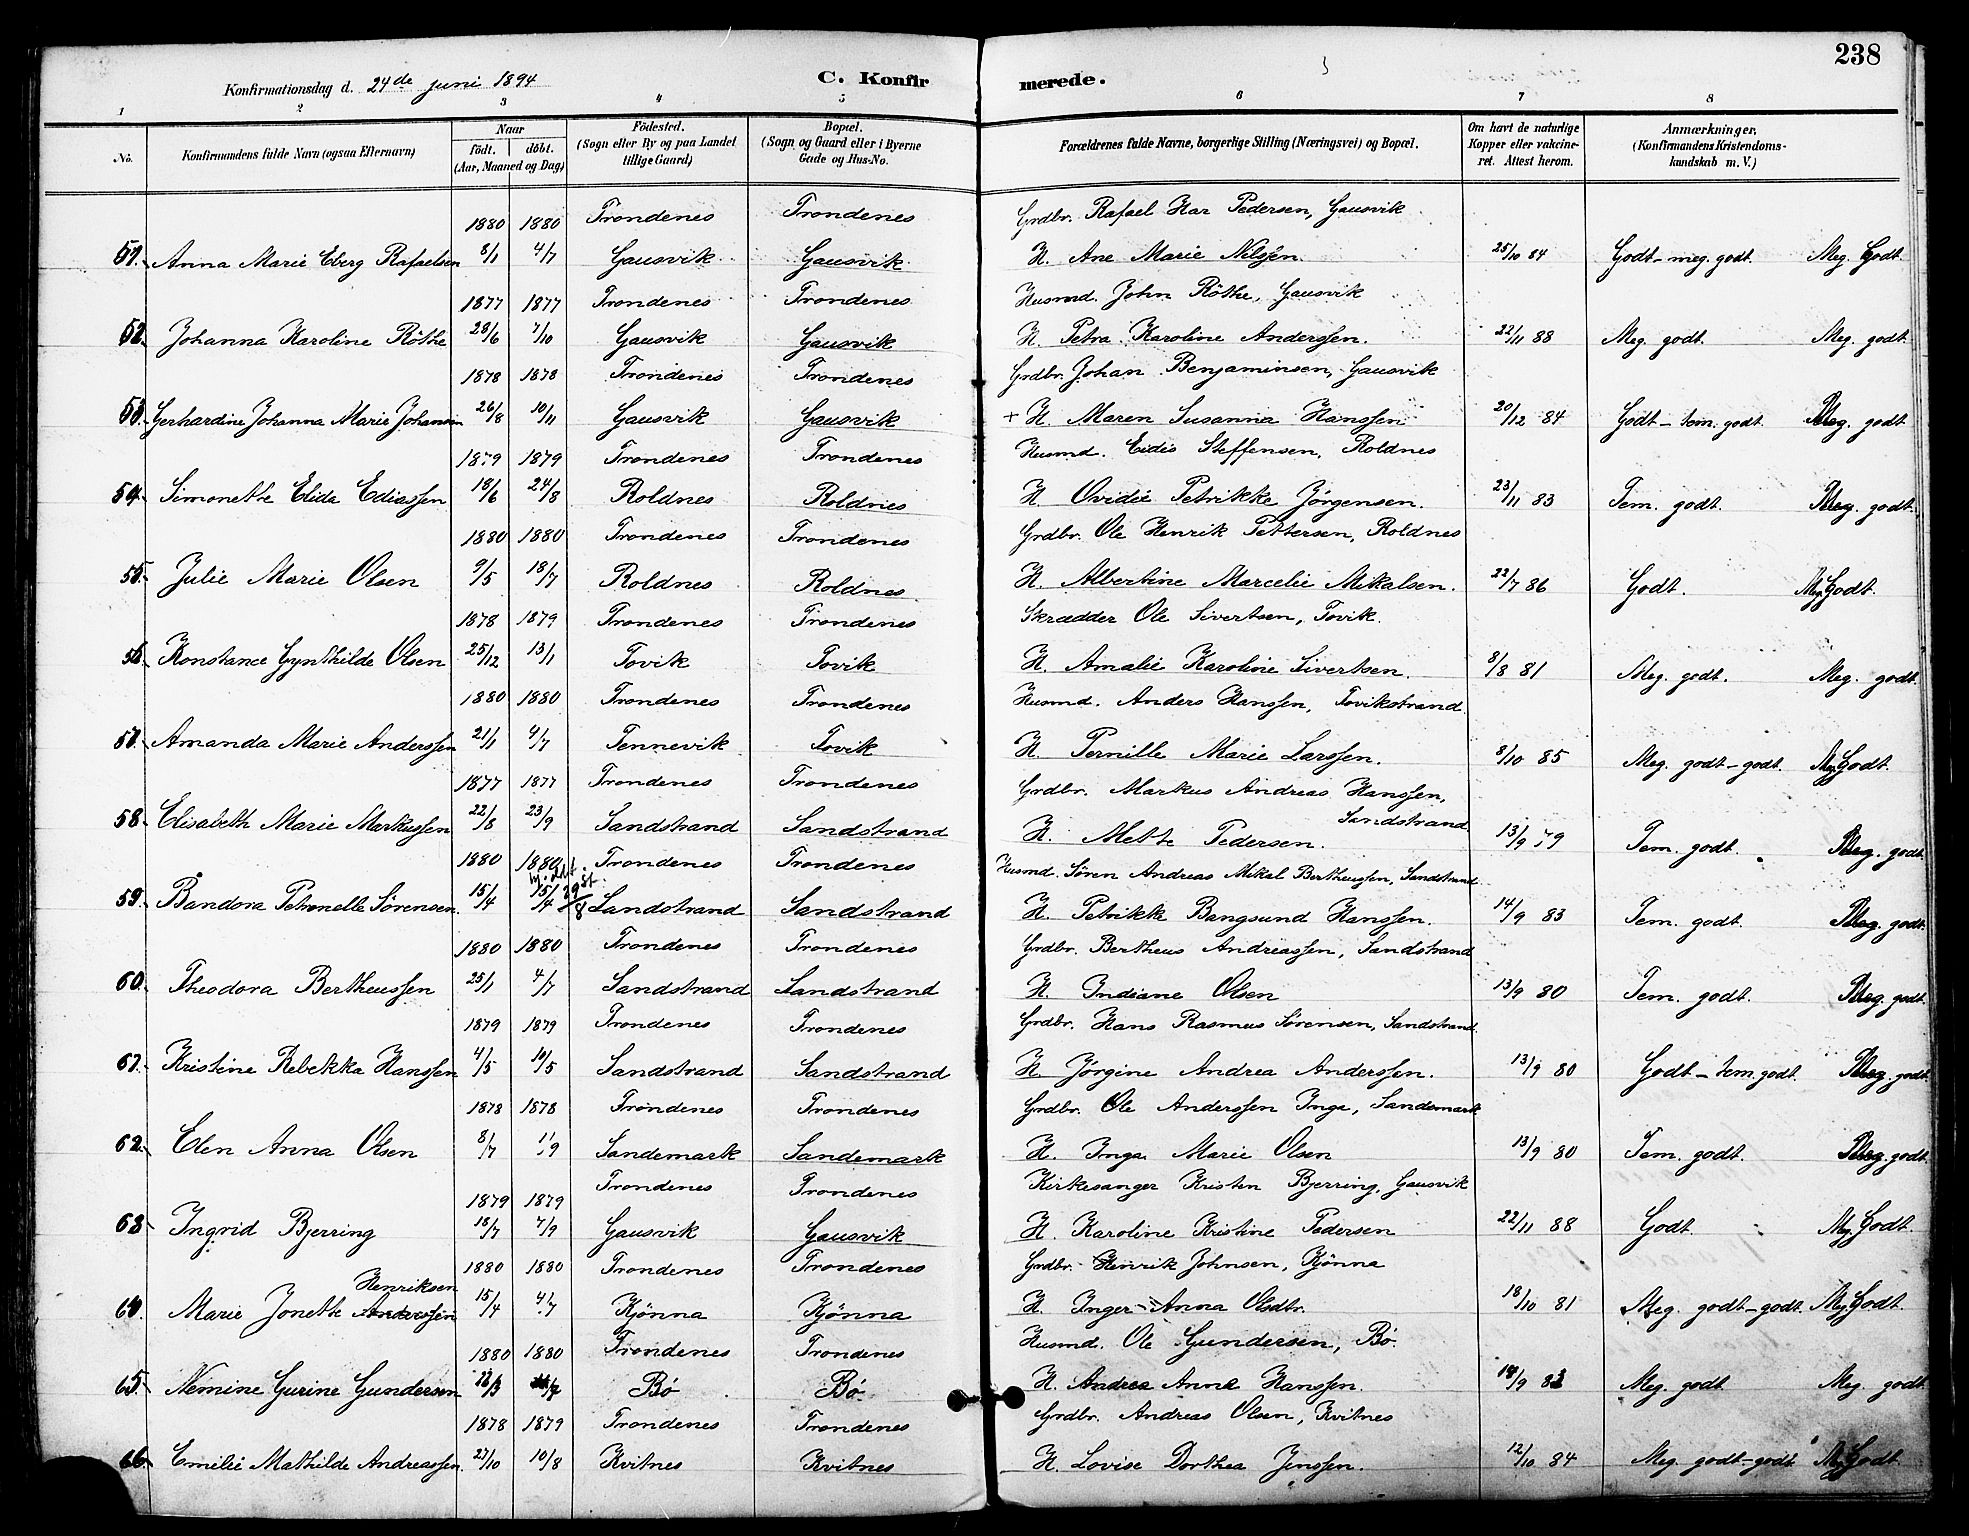 238
Konfirmationsdag d. 24de juni 1894
C. Konfirmerede.
1 2 3 4 5 6 7 8
No. Konfirmandens fulde Navn (ogsaa Efternavn) Naar født. døbt. (Aar, Maaned og Dag) Fødested. (Sogn eller By og paa Landet tillige Gaard) Bopæl. (Sogn og Gaard eller i Byerne Gade og Hus-No. Forældrenes fulde Navne, borgerlige Stilling (Næringsvei) og Bopæl. Om havt de naturlige Kopper eller vakcineret. Attest herom. Anmærkninger. (Konfirmandens Kristendomskundskab m. V.)
1880 1880 Trondenes Trondenes Grdbr. Rafael Kar Pedersen, Gausvik
51. Anna Marie Eberg Rafaelsen 8/1 4/7 Gausvik Gausvik H. Ane Marie Nilsen. 25/10 84 Godt - meg. godt. Meg. Godt.
1877 1877 Trondenes Trondenes Husmd. John Röthe, Gausvik
52. Johanna Karoline Röthe 28/6 7/10 Gausvik Gausvik H. Petra Karoline Anderssen. 22/11 88 Meg. godt. Meg. godt.
1878 1878 Trondenes Trondenes Grdbr. Johan Benjaminsen, Gausvik
53. Gerhardine Johanna Marie Johansen 26/8 10/11 Gausvik Gausvik + H. Maren Susanna Hanssen 20/12 84 Godt - tem. godt. Meg. godt
1879 1879 Trondenes Trondenes Husmd. Eidis Steffensen, Roldnes
54. Simonette Elida Ediassen 18/6 24/8 Roldnes Roldnes H. Ovidie Petrikke Jörgensen. 23/11 83 Tem. godt. Meg. godt.
1880 1880 Trondenes Trondenes Grdbr. Ole Henrik Pettersen, Roldnes
55. Julie Marie Olsen 9/5 18/7 Roldnes Roldnes H. Albertine Marcelie Mikalsen. 22/7 86 Godt. Meg Godt.
1878 1879 Trondenes Trondenes Skrædder Ole Sivertsen, Tovik.
56. Konstance Gynthilde Olsen 25/12 13/1 Tovik Tovik H. Amalie Karoline Sivertsen. 8/8 81 Meg. godt. Meg. godt.
1880 1880 Trondenes Trondenes Husmd. Anders Hanssen, Tovikstrand.
57. Amanda Marie Anderssen 21/1 4/7 Tennevik Tovik H. Pernille Marie Larssen. 8/10 85 Meg. godt - godt. Meg Godt.
1877 1877 Trondenes Trondenes Grdbr. Markus Andreas Hanssen,
Sandstrand
58. Elisabeth Marie Markussen 22/8 23/9 Sandstrand Sandstrand H. Mette Pedersen. 13/9 79 Tem. godt. Meg. godt.
1880 1880 Trondenes Trondenes Husmd. Sören Andreas Mikel Bertheussen, Sandstrand
hj. dbt. st.
59. Bandora Petronelle Sörensen. 15/4 15/4 29/8 Sandstrand Sandstrand H. Petrikk Bangsund Hanssen. 14/9 83 Tem. godt. Meg. godt.
1880 1880 Trondenes Trondenes Grdbr. Bertheus Andreassen, Sandstrand
60. Theodora Bertheussen 25/1 4/7 Sandstrand Sandstrand H. Indiane Olsen 13/9 80 Tem. godt. Meg. godt.
1879 1879 Trondenes Trondenes Grdbr. Hans Rasmus Sörensen, Sandstrand.
61. Kristine Rebekka Hanssen 4/5 10/5 Sandstrand Sandstrand H. Jörgine Andrea Anderssen. 13/9 80 Godt - tem. godt. Meg. godt
1878 1878 Trondenes Trondenes Grdbr. Ole Anderssen Inga, Sandemark
62. Elen Anna Olsen 8/7 1/9 Sandemark Sandemark H. Inga Marie Olsen 13/9 80 Tem. godt. Meg. godt.
1879 1879 Trondenes Trondenes Kirkesanger Kristen Bjerring, Gausvik
63. Ingrid Bjerring 18/7 7/9 Gausvik Gausvik H. Karoline Kristine Pedersen 22/11 88 Godt. Meg. Godt.
1880 1880 Trondenes Trondenes Grdbr. Henrik Johnsen, Kjönna
Henriksen
64. Marie Jonette Anderssen 15/4 4/7 Kjönna Kjönna H. Inger Anna Olsdtr. 18/10 81 Meg. godt - godt. Meg Godt.
1880 1880 Trondenes Trondenes Husmd. Ole Gundersen, Bö.
65. Nemine Gurine Gundersen Bö Bö H. Andrea Anna Hanssen. Meg. godt. Meg. godt
1878 1879 Trondenes Trondenes Grdbr. Andreas Olsen, Kvitnes
66. Emilie Mathilde Andreassen. 27/10 10/8 Kvitnes Kvitnes H. Lovise Dorthea Jenssen. 12/10 84 Meg. godt - godt Meg Godt.